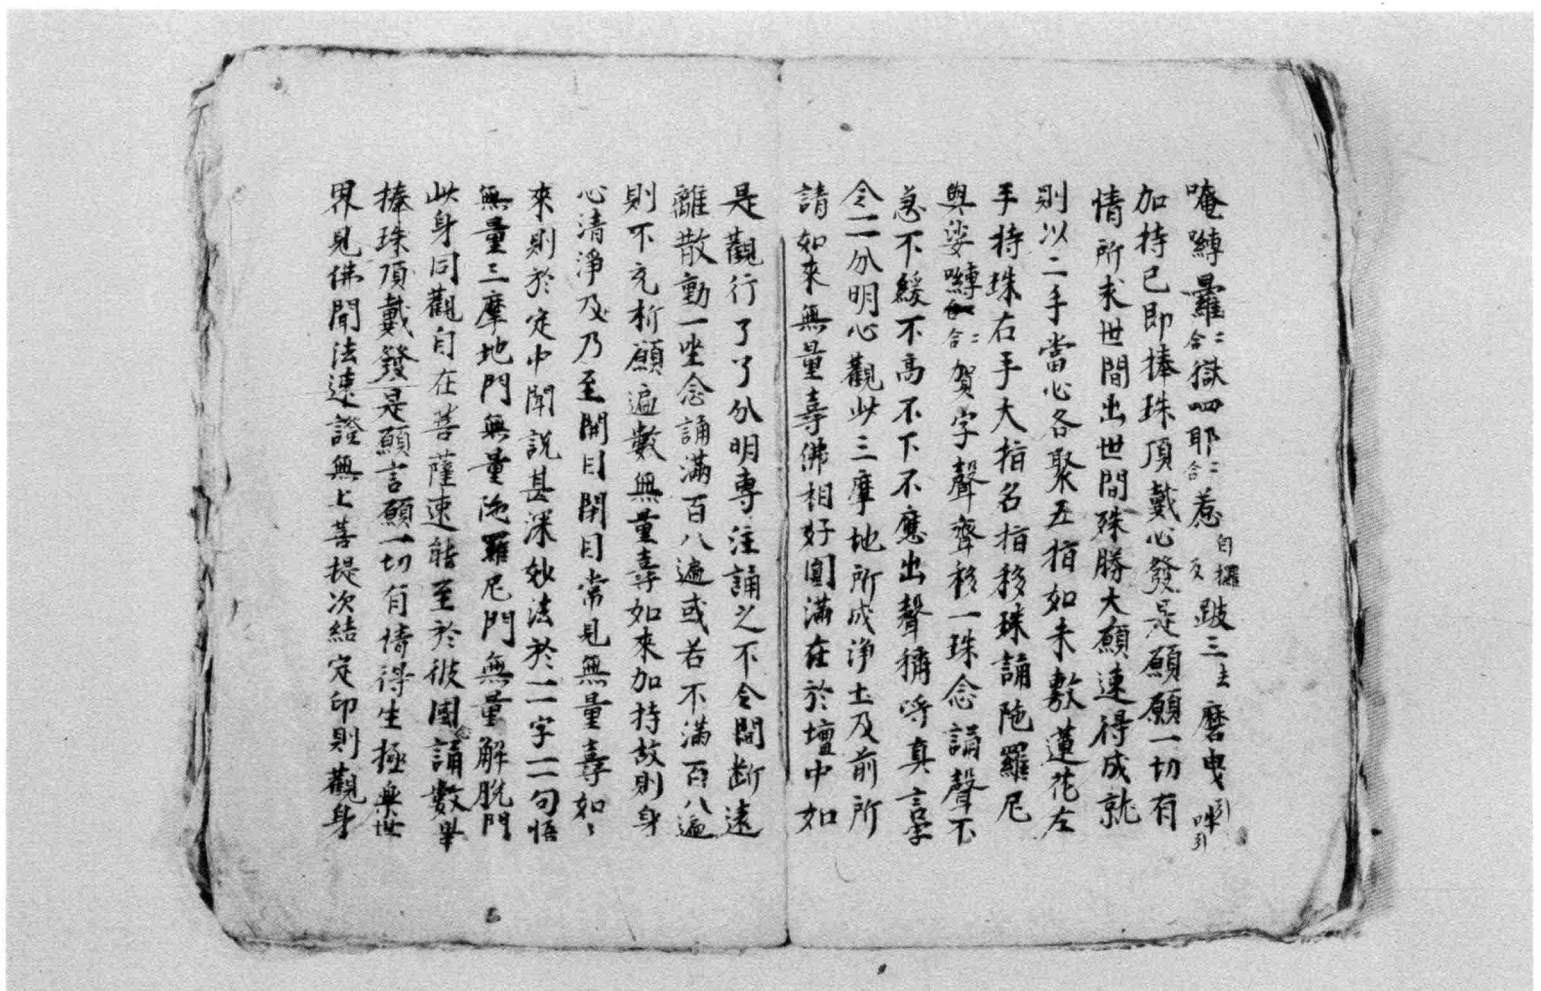 唵嚩曩羅二合獄呬耶二合惹自攞反跛三主磨曳引吽引
加持已即捧珠頂戴心發是願願一切有
情所求世間出世間殊勝大願速得成就
則以二手當心各聚五指如未敷蓮花左
手持珠右手大指名指移珠誦陁羅尼
與娑嚩二合賀字聲齊移一珠念誦聲不
急不緩不高不下不應出聲稱呼真言字
令一一分明心觀此三摩地所成淨土及前所
請如來無量壽佛相好圓滿在於壇中如
是觀行了了分明專注誦之不令間斷遠
離散動一坐念誦滿百八遍或若不滿百八遍
則不充析願遍數無量壽如來加持故則身
心清淨及乃至開目閉目常見無量壽如〻
來則於定中聞說甚深妙法於一一字一一句悟
無量三摩地門無量陁羅尼門無量解脫門
此身同觀自在菩薩速能至於彼國念誦數畢
捧珠頂戴發是願言願一切有情得生極樂世
界見佛聞法速證無上菩提次結定印則觀身